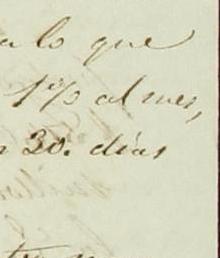 a lo que
1 % al mes,
30. dias